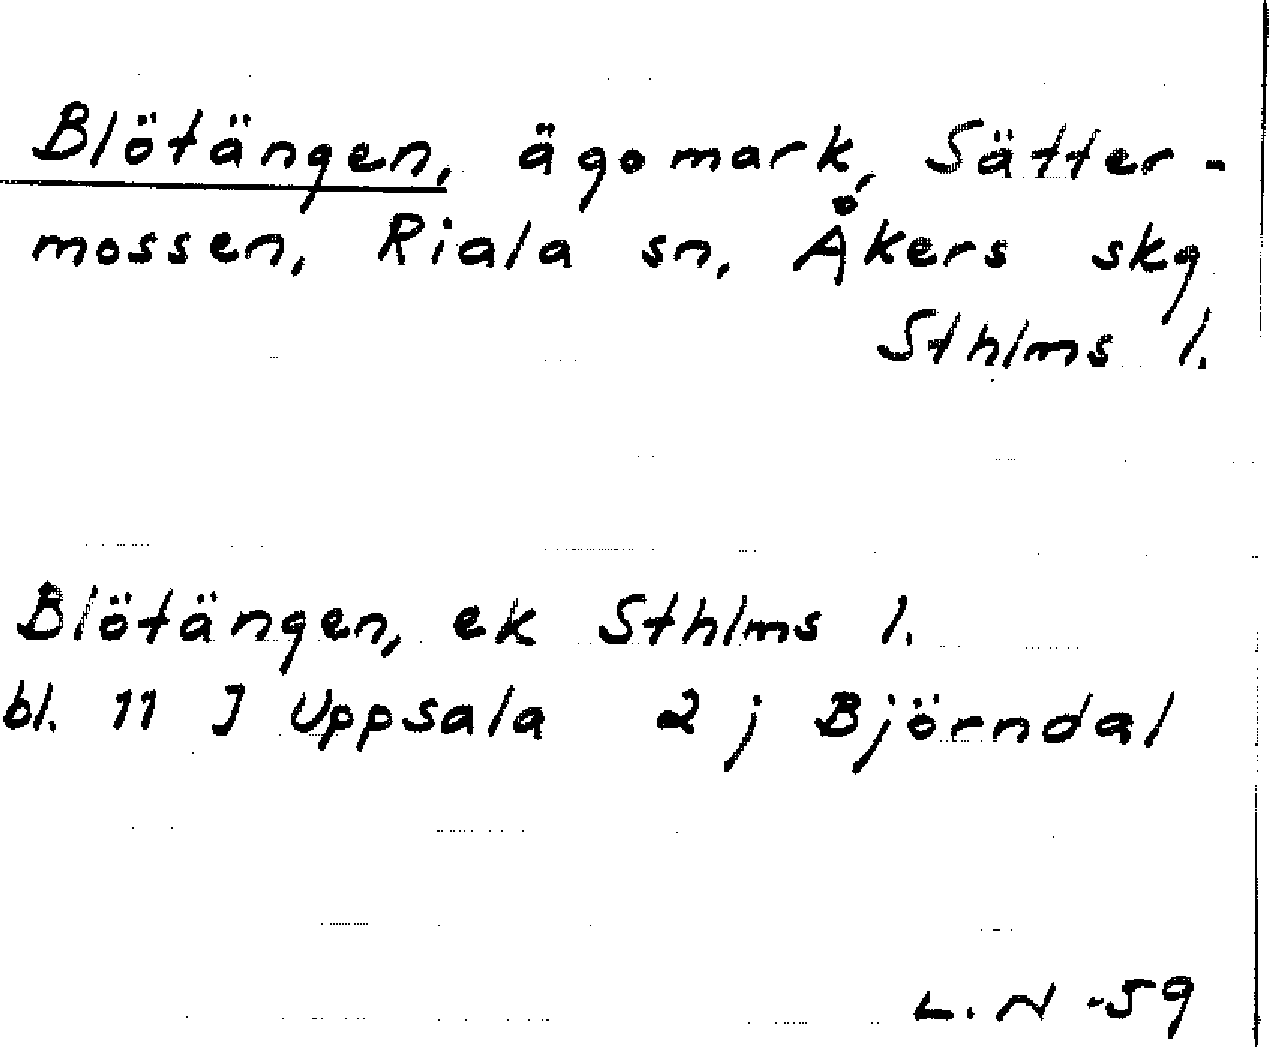 Blötängen, ägomark, Sätter-
mossen, Riala sn, Åkers skg
Sthlms l.
Blötängen, ek Sthlms l.
bl. 11 J Uppsala 2 j Björndal
L. N -59